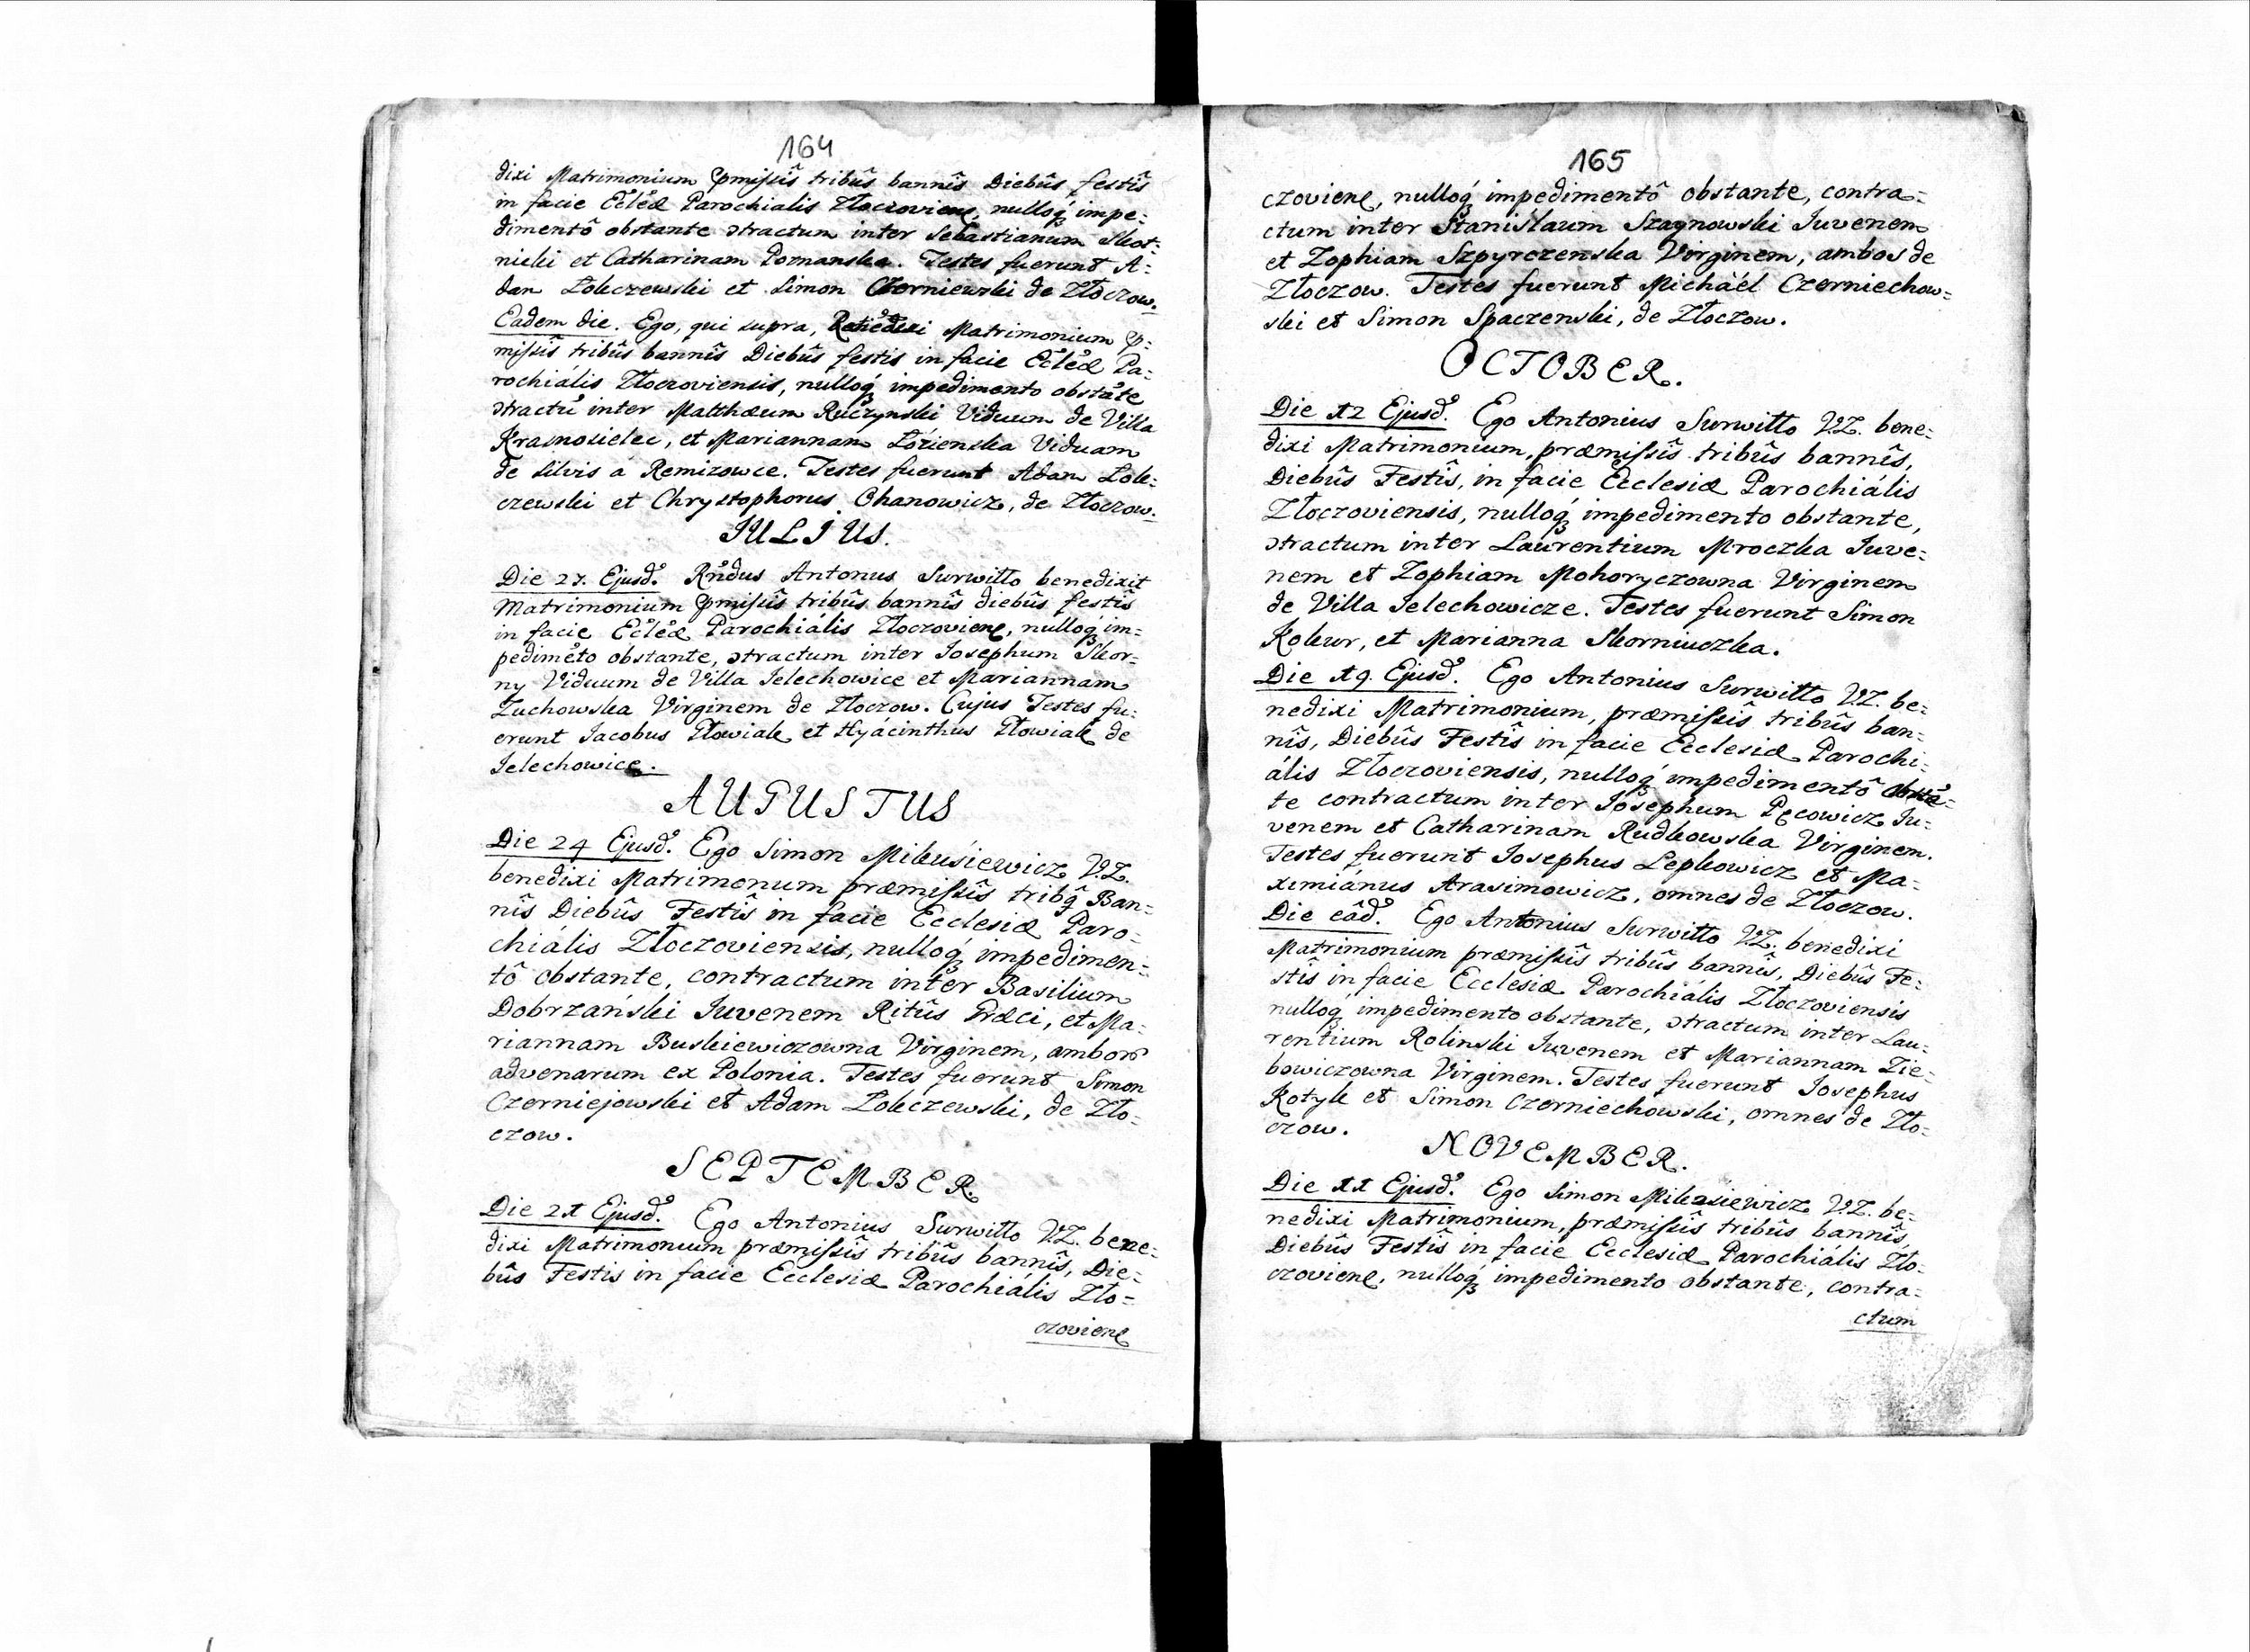 164
dixi Matrimonium pmissîs tribûs bannîs Diebûs festîs
in facie Ecłeæ Parochialis Złoczovien, nulloq́ impe:
dimentô obstante ɔtractum inter Sebastianum Skot:
nicki et Catharinam Poznanska. Testes fuerunt A:
dam Łokczewski et Simon Czerniewski de Złoczow.
Eadem die. Ego, qui supra, Benedixi Matrimonium p:
missîs tribûs bannîs Diebûs festis in facie Ecłeæ Pa:
rochiális Złoczoviensis, nulloq́ impedimento obstāte
ɔtractū inter Matthæum Ruczynski Viduum de Villa
Krasnosielec, et Mariannam Łozienska Viduam
de silvis á Remizowce. Testes fuerunt Adam Łok:
czewski et Chrystophorus Ohanowicz, de Złoczow.
JULIUS.
Die 27. Ejusd. Rndus Antonus Surwiłło benedixit
Matrimonium pmissîs tribûs bannîs diebûs festîs
in facie Ecłeæ Parochiális Złoczovien, nulloq́ im:
pedimēto obstante, ɔtractum inter Josephum Skor:
ny Viduum de Villa Jelechowice et Mariannam
Zuchowska Virginem de Złoczow. Cujus Testes fu:
erunt Jacobus Płowiak et Hyácinthus Płowiak de
Jelechowice.
AUGUSTUS
Die 24 Ejusd. Ego Simon Mikusiewicz V.Z.
benedixi Matrimonum præmissîs tribq̂ Ban:
nîs Diebûs Festîs in facie Ecclesiæ Paro:
chiális Złoczoviensis, nulloq́ impedimen:
tô obstante, contractum inter Basilium
Dobrzański Juvenem Ritûs Græci, et Ma:
riannam Buskiewiczowna Virginem, ambor
advenarum ex Polonia. Testes fuerunt Simon
Czerniejowski et Adam Łokczewski, de Zło:
czow.
SEPTEMBER.
Die 21 Ejusd. Ego Antonius Surwiłło V.Z. bene:
dixi Matrimonium præmissîs tribûs bannîs, Die:
bûs Festis in facie Ecclesiæ Parochiális Zło:
czovien
165
czovien, nulloq́ impedimentô obstante, contra:
ctum inter Stanisłaum Szagnowski Juvenem
et Zophiam Szpyrczenska Virginem, ambos de
Złoczow. Testes fuerunt Michàél Czerniechow:
ski et Simon Spaczenski, de Złoczow.
OCTOBER.
Die 12 Ejusd. Ego Antonius Surwiłło V.Z. bene:
dixi Matrimonium, præmissîs tribûs bannîs,
Diebûs Festîs, in facie Ecclesiæ Parochiális
Złoczoviensis, nulloq́ impedimento obstante,
ɔtractum inter Laurentium Mroczka Juve:
nem et Zophiam Mohoryczowna Virginem
de Villa Jelechowicze. Testes fuerunt Simon
Kokur, et Marianna Skorniuczka.
Die 19. Ejusd. Ego Antonius Surwiłło V.Z. be:
nedixi Matrimonium, præmissîs tribûs ban:
nîs, Diebûs Festîs in facie Ecclesiæ Parochi:
ális Złoczoviensis, nulloq́ impedimentô obstā:
te contractum inter Josephum Pęcowicz Ju:
venem et Catharinam Rudkowska Virginem.
Testes fuerunt Josephus Lepkowicz et Ma:
ximiánus Arasimowicz, omnes de Złoczow.
Die eâd. Ego Antonius Surwiłło V.Z. benedixi
Matrimonium præmissîs tribûs bannîs, Diebûs Fe:
stîs in facie Ecclesiæ Parochiális Złoczoviensis
nulloq́ impedimento obstante, ɔtractum inter Lau:
rentium Rolinski Juvenem et Mariannam Zie:
bowiczowna Virginem. Testes fuerunt Josephus
Kotyk et Simon Czerniechowski, omnes de Zło:
czow.
NOVEMBER.
Die 11 Ejusd. Ego Simon Mikusiewicz V.Z. be:
nedixi Matrimonium, præmissîs tribûs bannîs,
Diebûs Festîs in facie Ecclesiæ Parochiális Zło:
czovien, nulloq́ impedimento obstante, contra:
ctum